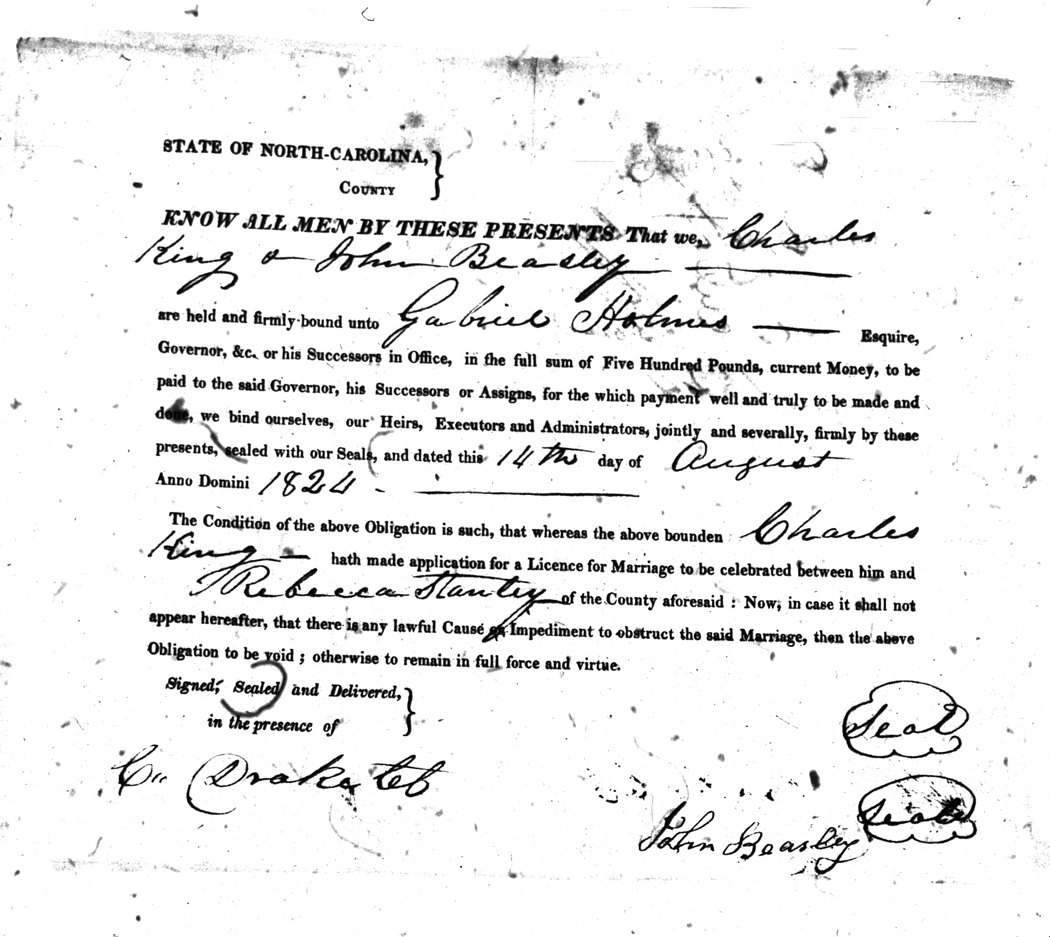 STATE OF NORTH-CAROLINA,
COUNTY
KNOW ALL MEN BY THESE PRESENTS That we, Charles
King & John Beasley
are held and firmly bound unto Gabriel Holmes Esquire,
Governor, &c. or his Successors in Office, in the full sum of Five Hundred Pounds, current Money, to be
paid to the said Governor, his Successors or Assigns, for the which payment well and truly to be made and
done, we bind ourselves, our Heirs, Executors and Administrators, jointly and severally, firmly by these
presents, sealed with our Seals, and dated this 14th day of August
Anno Domini 1824
The Condition of the above Obligation is such, that whereas the above bounden Charles
King hath made application for a Licence for Marriage to be celebrated between him and
Rebecca Stanley of the County aforesaid : Now, in case it shall not
appear hereafter, that there is any lawful Cause or Impediment to obstruct the said Marriage, then the above
Obligation to be void ; otherwise to remain in full force and virtue.
Signed, Sealed and Delivered,
in the presence of
Seal
Drake
Seal
John Beasley